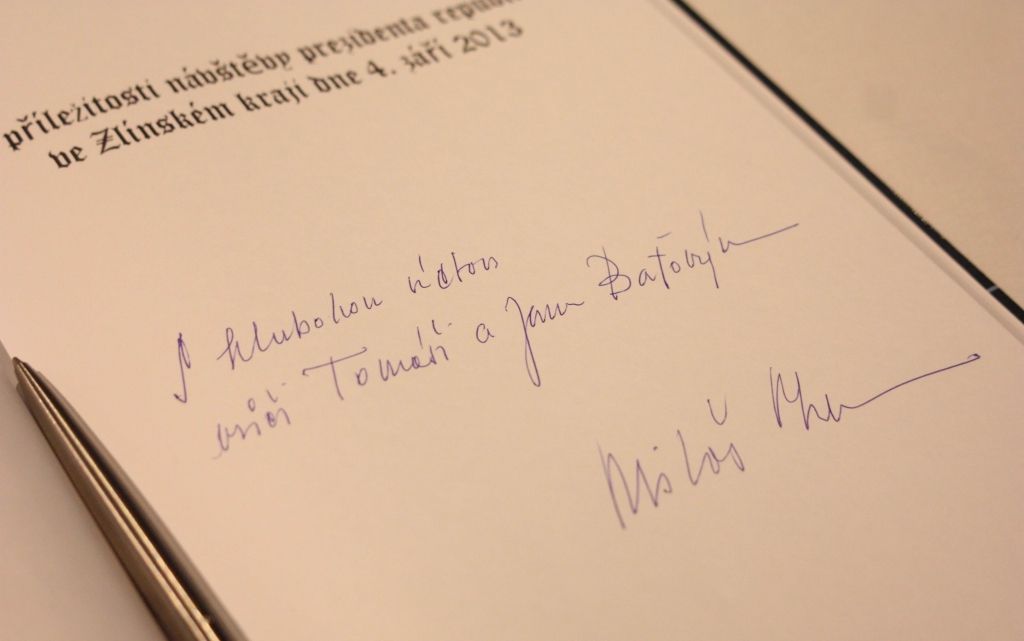 příležitosti návštěvy prezidenta republi
ve Zlínském kraji dne 4. září 2013
S hlubokou úctou
vůči Tomáši a Janu Baťovým
Miloš Zeman